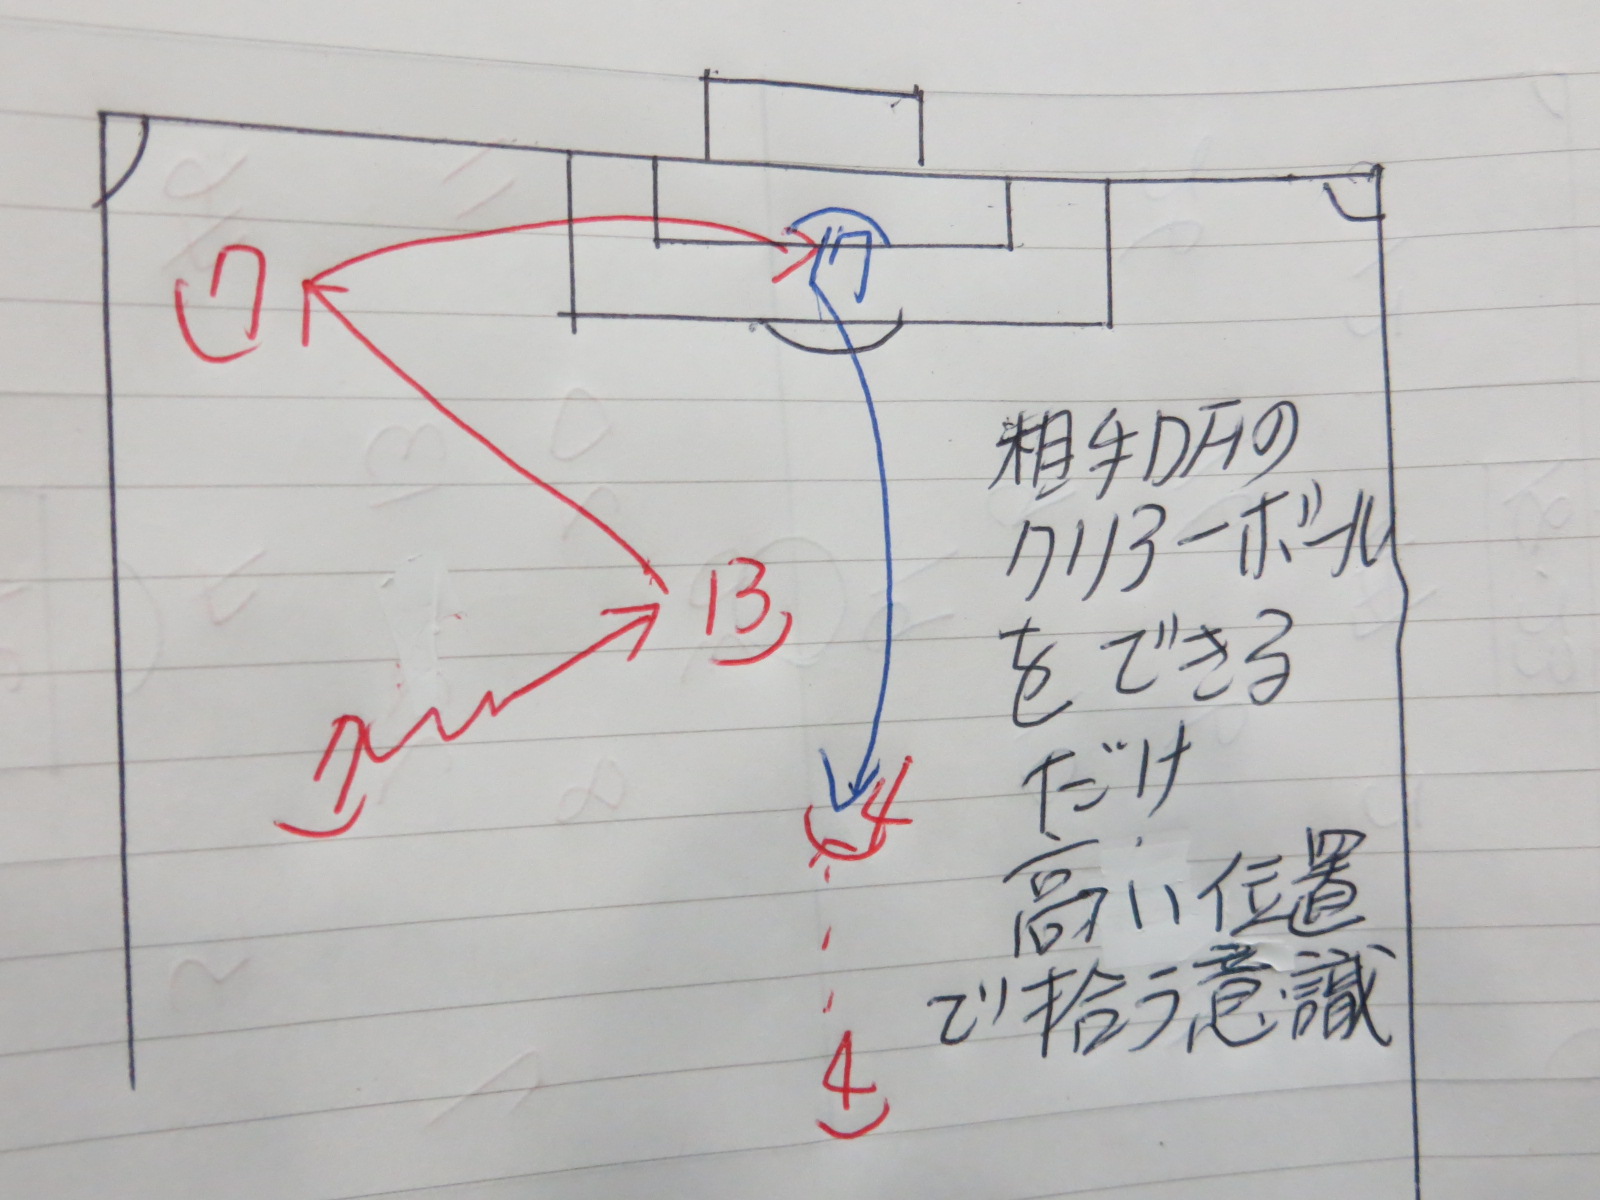 7
17
13
2
4
4
相手DFの
クリアーボール
をできる
だけ
高い位置
で拾う意識